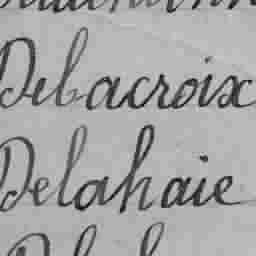 Delacroix
Delahaie